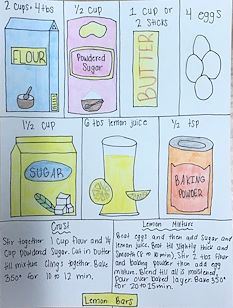 2 cups + 4 tbs
1/2 cup
1 cup or
2 sticks
4 eggs
FLOUR
Powdered
Sugar
BUTTER
1 1/2 cup
6 tbs lemon juice
1/2 tsp
SUGAR
BAKING
POWDER
Crust
Stir together 1 cup flour and 1/4
cup powdered sugar. Cut in butter
till mixture clings together. Bake
350° for 10 to 12 min.
Lemon Mixture
Beat eggs and then add sugar and
lemon juice. Beat till slightly thick and
smooth (8 to 10 min). Stir 2 tbs flour
and baking powder then add egg
mixture. Blend till all is moistened.
Pour over baked layer. Bake 350°
for 20 to 25 min.
Lemon Bars